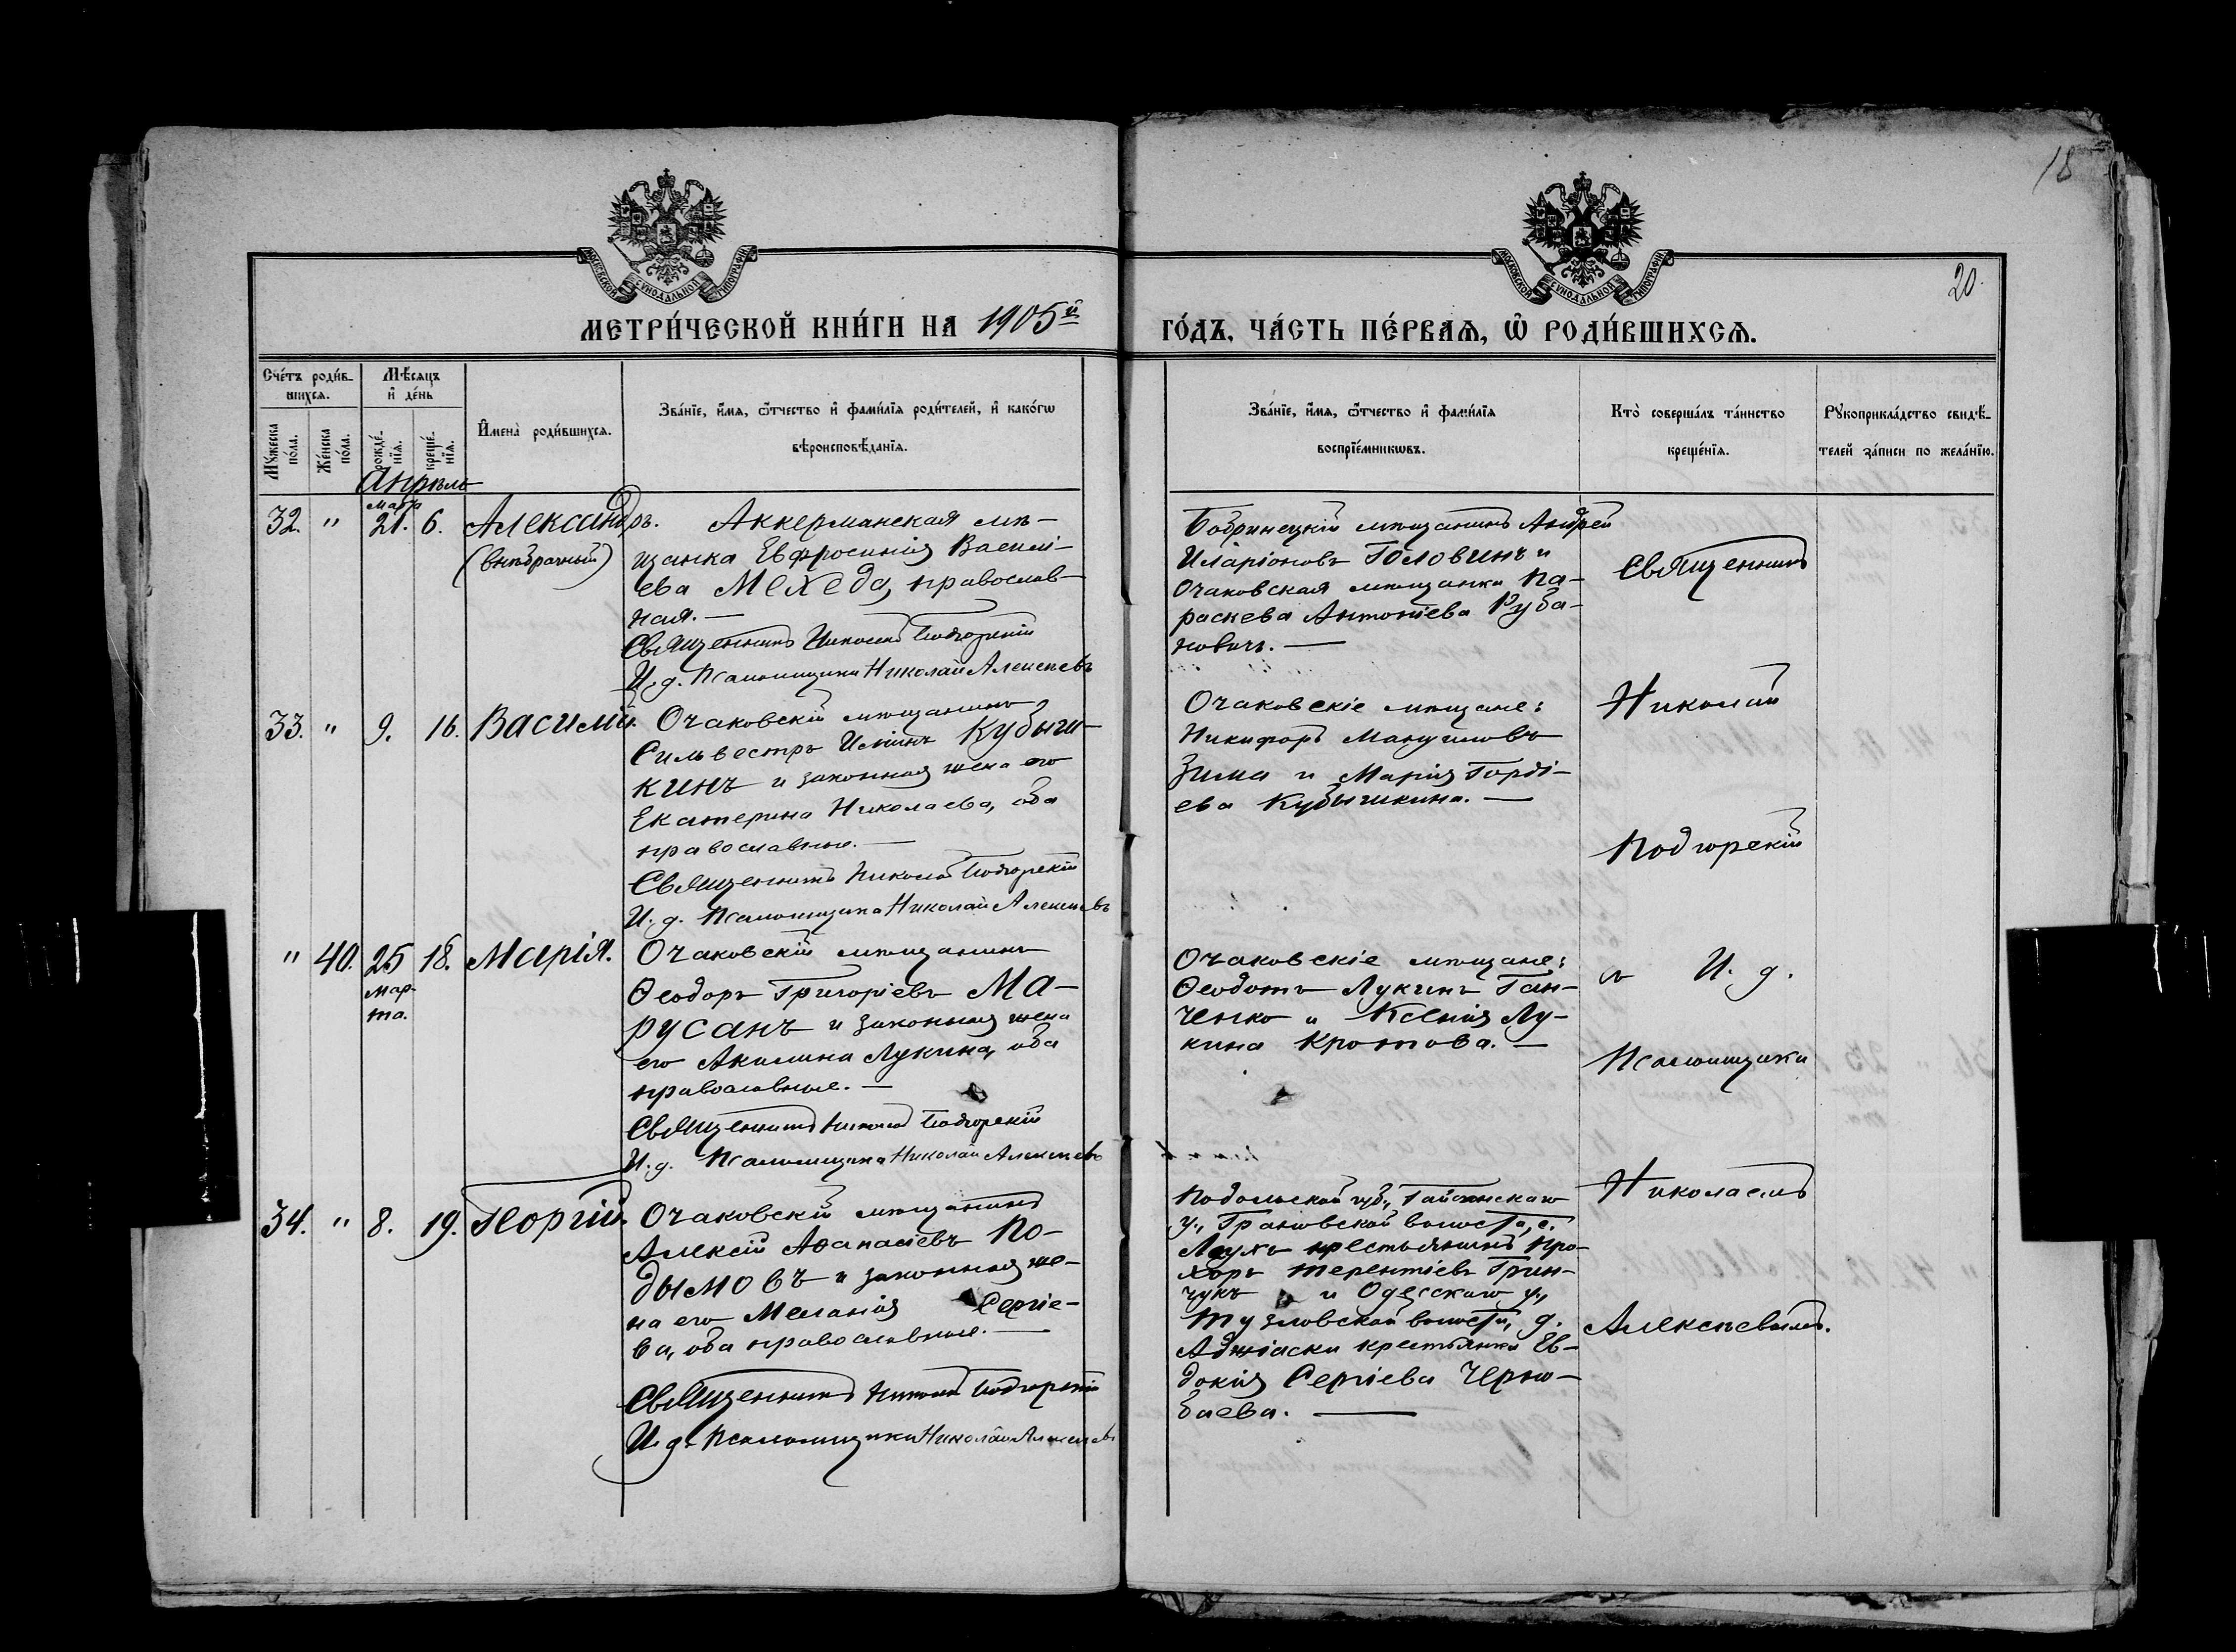 18
20.
МОСКОВСКОЙ СѴНОДАЛЬНОЙ ТИПОГРАФІИ
МОСКОВСКОЙ СѴНОДАЛЬНОЙ ТИПОГРАФІИ
МЕТРИ́ЧЕСКОЙ КНИ́ГИ НА 1905й ГО́ДЪ, ЧА́СТЬ ПЕ́РВАѦ, Ѡ҆ РОДИ́ВШИХСѦ.
Сче́тъ роди́в-
шихсѧ.
Мѣ́сѧцъ
и҆ де́нь
Мꙋ́жеска
по́ла.
Же́нска
по́ла.
рожде́-
нїѧ.
креще́-
нїѧ.
И҆мена̀ роди́вшихсѧ.
Зва́нїе, и҆́мѧ, ѻ҆́тчество и҆ фами́лїѧ роди́телей, и҆ како́гѡ
вѣроисповѣ́данїѧ.
Зва́нїе, и҆́мѧ, ѻ҆́тчество и҆ фами́лїѧ
воспрїе́мникѡвъ.
Кто̀ соверша́лъ та́инство
креще́нїѧ.
Рꙋкоприкла́дство свидѣ́-
телей за́писи по жела́нїю.
Апрѣль
32. " Марта 21. 6. Александръ.
(внѣбрачный)
Аккерманская мѣ-
щанка Евфросинія Василі-
ева Мехеда, православ-
ная. —
Священникъ Николай Подгорскій
И. д. Псаломщика Николай Алексѣевъ
Бобринецкій мѣщанинъ Андрей
Иларіоновъ Головинъ и
Очаковская мѣщанка Па-
раскева Антоніева Руба-
новичъ. —
33. " 9. 16. Василій.
Очаковскій мѣщанинъ
Сильвестръ Ильинъ Кубыш-
кинъ и законная жена его
Екатерина Николаева, оба
православные. —
Священникъ Николай Подгорскій
И. д. Псаломщика Николай Алексѣевъ
Очаковскіе мѣщане:
Никифоръ Мануиловъ
Зима и Марія Горді-
ева Кубышкина. —
" 40. 25 Мар-
та. 18. Марія.
Очаковскій мѣщанинъ
Ѳеодоръ Григоріевъ Ма-
русанъ и законная жена
его Акилина Лукина, оба
православные. —
Священникъ Николай Подгорскій
И. д. Псаломщика Николай Алексѣевъ
Очаковскіе мѣщане:
Ѳеодотъ Лукинъ Ган-
ченко и Ксенія Лу-
кина Кротова. —
34. " 8. 19. Георгій.
Очаковскій мѣщанинъ
Алексій Аѳанасіевъ По-
дымовъ и законная же-
на его Меланія Сергіе-
ва, оба православные. —
Священникъ Николай Подгорскій
И. д. Псаломщика Николай Алексѣевъ
Подольской губ., Гайсинскаго
у., волости, с.
крестьянинъ Про-
хоръ Терентіевъ Грин-
чукъ и Одесскаго у.,
Тузловской волости, д.
Аджіаски крестьянка Ев-
докія Сергіева
баева. —
Священникъ
Николай
Подгорскій
съ И. д.
Псаломщика
Николаемъ
Алексѣевымъ.